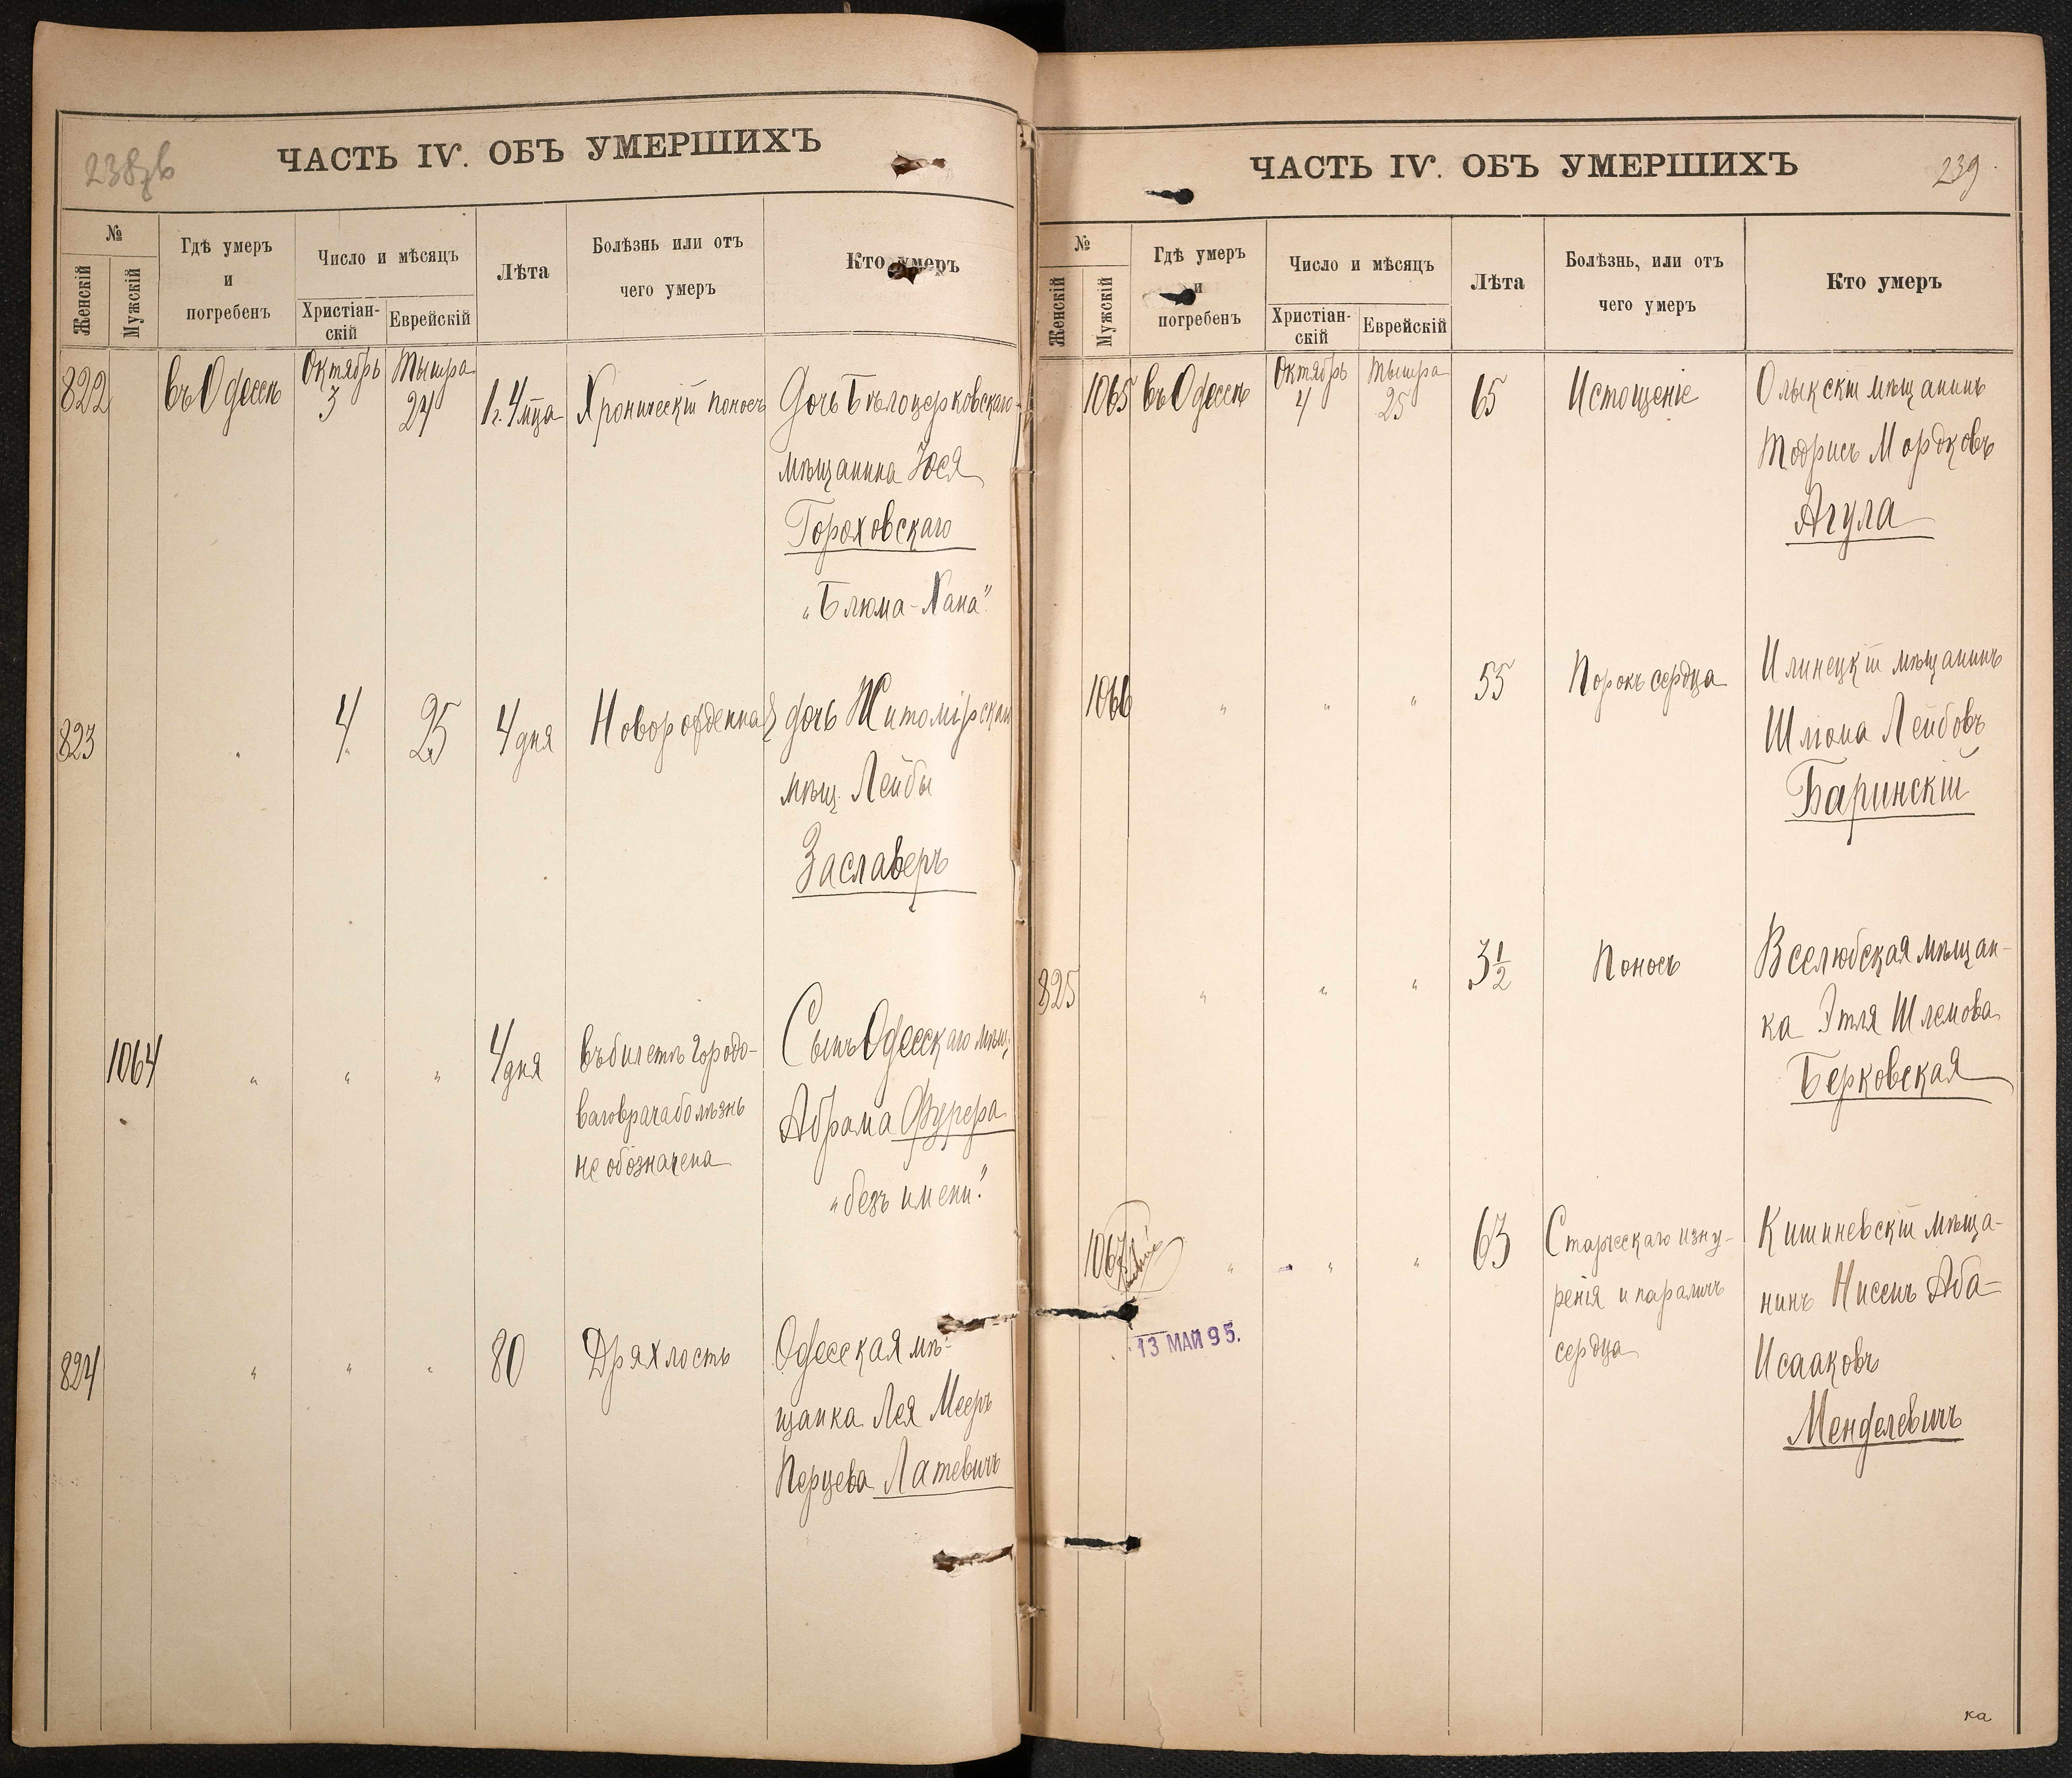 238 об
ЧАСТЬ IV. ОБЪ УМЕРШИХЪ
№
Женскій
Мужскій
Гдѣ умеръ
и
погребенъ
Число и мѣсяцъ
Христіан-
скій
Еврейскій
Лѣта
Болѣзнь или отъ
чего умеръ
Кто умеръ
822
въ Одессѣ
Октябрь
3
Тышра
24
1 г. 4 мца
Хроническій поносъ
Дочь Бѣлоцерковскаго
мѣщанина Іося
Гороховскаго
„Блюма-Хана"
823
"
4
25
4 дня
Новорожденная
дочь Житомірскаго
мѣщ. Лейбы
Заславеръ
1064
"
"
"
4 дня
въ билетѣ городо-
ваго врача болѣзнь
не обозначена
Сынъ Одесскаго мѣщ.
Абрама Фурера
„безъ имени"
824
"
"
"
80
Дряхлость
Одесская мѣ-
щанка Лея Мееръ
Перцева Латевичъ
ЧАСТЬ IV. ОБЪ УМЕРШИХЪ
239
№
Женскій
Мужскій
Гдѣ умеръ
и
погребенъ
Число и мѣсяцъ
Христіан-
скій
Еврейскій
Лѣта
Болѣзнь, или отъ
чего умеръ
Кто умеръ
1065
въ Одессѣ
Октябрь
4
Тышра
25
65
Истощеніе
Олыкскій мѣщанинъ
Тодрисъ Мордковъ
Агула
1066
"
"
"
55
Порокъ сердца
Илинецкій мѣщанинъ
Шліома Лейбовъ
Баринскій
825
"
"
"
3½
Поносъ
Вселюбская мѣщан-
ка Этля Шлемова
Берковская
1067
"
"
"
63
Старческаго изну-
ренія и параличъ
сердца
Кишиневскій мѣща-
нинъ Нисенъ Аба-
Исааковъ
Менделевичъ
13 МАЙ 95.
ка